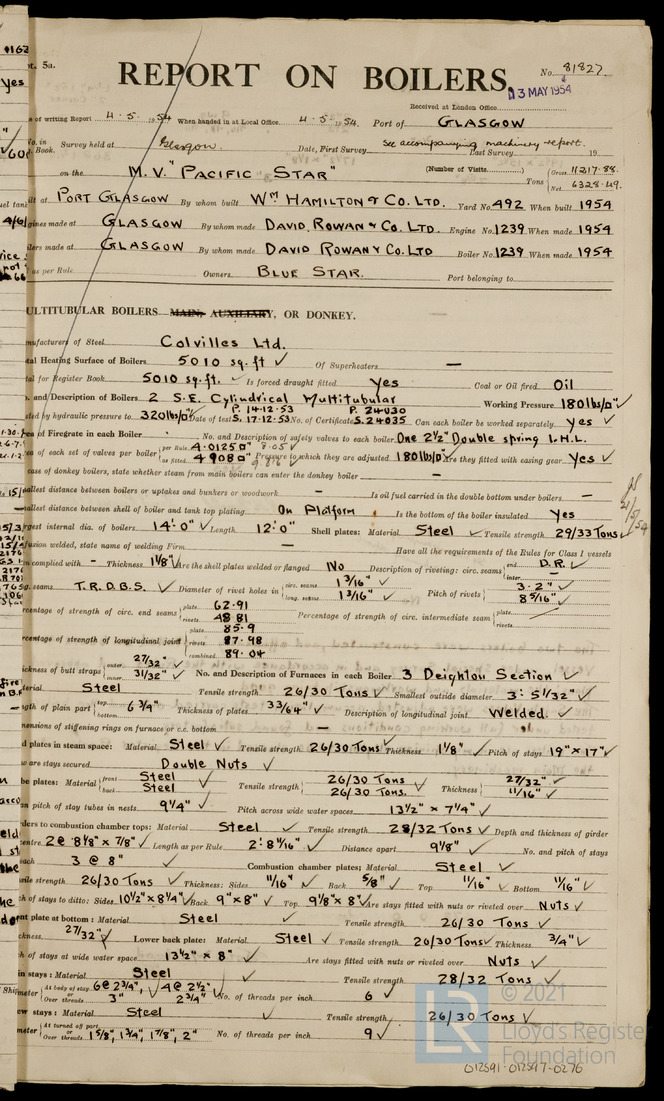 pt. 5a.
REPORT ON BOILERS.
No. 81827
13 MAY 1954
Received at London Office
of writing Report 4.5.1954 When handed in at Local Office 4.5.1954. Port of GLASGOW
No. in Book. Survey held at Glasgow. Date, First Survey see accompanying machinery report. Last Survey 19
on the M.V. "PACIFIC STAR" (Number of Visits) Tons Gross 11217.88. Net 6328.49.
ilt at PORT GLASGOW By whom built Wm HAMILTON & CO. LTD. Yard No. 492 When built 1954
gines made at GLASGOW By whom made DAVID ROWAN & CO. LTD. Engine No. 1239 When made 1954
ilers made at GLASGOW By whom made DAVID ROWAN & CO. LTD Boiler No. 1239 When made 1954
as per Rule Owners BLUE STAR. Port belonging to
ULTITUBULAR BOILERS MAIN, AUXILIARY, OR DONKEY.
nufacturers of Steel Colvilles Ltd.
tal Heating Surface of Boilers 5010 sq. ft ✓ Of Superheaters —
tal for Register Book 5010 sq. ft. ✓ Is forced draught fitted Yes Coal or Oil fired Oil
. and Description of Boilers 2 S.E. Cylindrical Multitubular Working Pressure 180 lbs/□" ✓
sted by hydraulic pressure to 320 lbs/□" Date of test P. 14.12.53 S. 17.12.53 No. of Certificate P. 24030 S. 24035 Can each boiler be worked separately Yes ✓
ea of Firegrate in each Boiler — No. and Description of safety valves to each boiler One 2½" Double spring I.H.L.
ea of each set of valves per boiler per Rule 4.0125□" 8.05 ✓ as fitted 4.908□" 9.816 ✓ Pressure to which they are adjusted 180 lb/□" Are they fitted with easing gear Yes ✓
case of donkey boilers, state whether steam from main boilers can enter the donkey boiler —
allest distance between boilers or uptakes and bunkers or woodwork — Is oil fuel carried in the double bottom under boilers —
allest distance between shell of boiler and tank top plating On Platform Is the bottom of the boiler insulated Yes
rgest internal dia. of boilers 14'.0" ✓ Length 12'.0" Shell plates: Material Steel ✓ Tensile strength 29/33 Tons ✓
fusion welded, state name of welding Firm — Have all the requirements of the Rules for Class I vessels
n complied with — Thickness 1⅛" Are the shell plates welded or flanged No Description of riveting: circ. seams end D.R. ✓ inter.
g. seams T.R.D.B.S. ✓ Diameter of rivet holes in circ. seams 1 3/16" ✓ long. seams 1 3/16" ✓ Pitch of rivets 3.2" ✓ 8 5/16" ✓
rcentage of strength of circ. end seams plate 62.91 rivets 48.81 Percentage of strength of circ. intermediate seam plate rivets
rcentage of strength of longitudinal joint plate 85.9 rivets 87.98 combined 89.04
ickness of butt straps outer 27/32" ✓ inner 31/32" ✓ No. and Description of Furnaces in each Boiler 3 Deighton Section ✓
terial Steel Tensile strength 26/30 Tons ✓ Smallest outside diameter 3'. 5 1/32" ✓
ngth of plain part top bottom 6¾" Thickness of plates 33/64" ✓ Description of longitudinal joint Welded. ✓
mensions of stiffening rings on furnace or c.c. bottom —
d plates in steam space: Material Steel ✓ Tensile strength 26/30 Tons Thickness 1⅛" ✓ Pitch of stays 19" × 17" ✓
w are stays secured Double Nuts ✓
be plates: Material front Steel back Steel ✓ Tensile strength 26/30 Tons 26/30 Tons. Thickness 27/32" ✓ 11/16" ✓
an pitch of stay tubes in nests 9¼" ✓ Pitch across wide water spaces 13½" × 7¼" ✓
rders to combustion chamber tops: Material Steel ✓ Tensile strength 28/32 Tons ✓ Depth and thickness of girder
centre 2 @ 8⅛" × ⅞" ✓ Length as per Rule 2'. 8 11/16" ✓ Distance apart 9⅛" ✓ No. and pitch of stays
each 3 @ 8" ✓ Combustion chamber plates; Material Steel ✓
nsile strength 26/30 Tons ✓ Thickness: Sides 11/16" ✓ Back ⅝" ✓ Top 11/16" ✓ Bottom 11/16" ✓
ch of stays to ditto: Sides 10½" × 8¼" ✓ Back 9" × 8" ✓ Top 9⅛" × 8" ✓ Are stays fitted with nuts or riveted over Nuts ✓
ont plate at bottom: Material Steel Tensile strength 26/30 Tons
ickness 27/32" ✓ Lower back plate: Material Steel ✓ Tensile strength 26/30 Tons ✓ Thickness ¾" ✓
ch of stays at wide water space 13½" × 8" ✓ Are stays fitted with nuts or riveted over Nuts ✓
in stays: Material Steel Tensile strength 28/32 Tons ✓
meter At body of stay, or Over threads 6 @ 2¾", 4 @ 2½" 3" 2¾" ✓ No. of threads per inch 6 ✓
ew stays: Material Steel ✓ Tensile strength 26/30 Tons ✓
meter At turned off part, or Over threads 1⅝", 1¾", 1⅞", 2" No. of threads per inch 9 ✓
LR
© 2021
Lloyd's Register
Foundation
012591-012597-0276